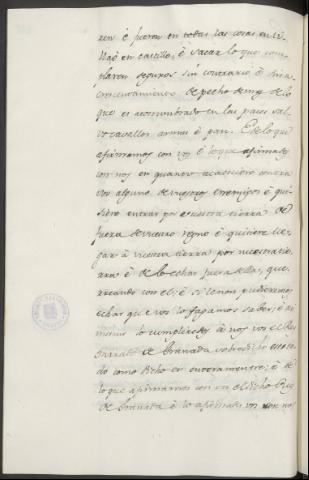 ren é fueren en todas las cosas en vi
llas é en castillo, é sacar lo que com
praren seguros sin contrario é sin a
crescentamiento de pecho de mas de lo
que es acostumbrado en las paces sal
vo cavallos armas é pan. E de lo que
afirmamos con vos é lo que afirmais
con nos en quanto acaesciere contra
vos alguno de vuestros enemigos é qui
siere entrar por vuestra tierra de
fuera de vuestro regno é quisiere lle
gar á vuestra tierra por nuestra tie
rra é de lo echar fuera della, que
reando con el; é si le non pudieremos
echar que vos lo fagamos saber; é a
mismo lo cumpliredes á nos vos el Rey
de Granada sobredicho esto to
do como dicho es enteramente; é de
lo que afirmamos con vos el dicho Rey
de Granada é lo afirmais vos con nos